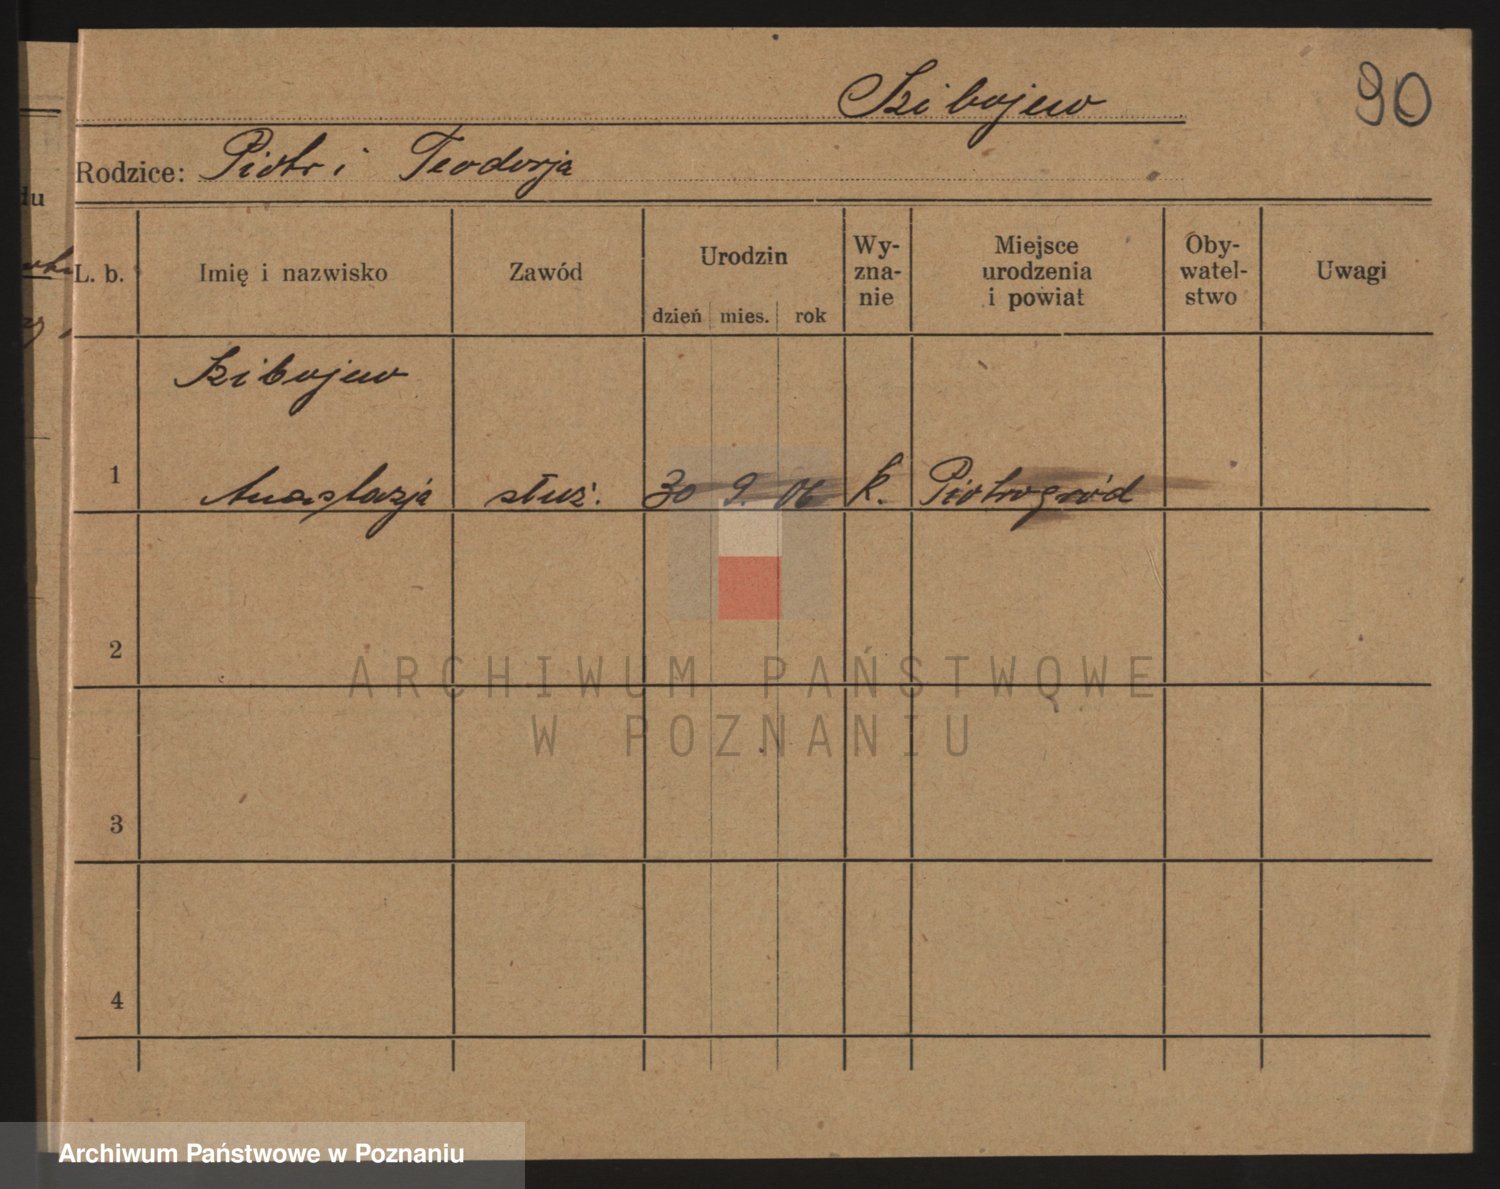 Szibojew
90
Rodzice: Piotr i Teodorja
du
L. b.
Imię i nazwisko
Zawód
Urodzin
dzień mies. rok
Wy-
zna-
nie
Miejsce
urodzenia
i powiat
Oby-
watel-
stwo
Uwagi
Szibojew
1 Anastazja służ. 30 9. 06 k. Piotrogród
2
3
4
ARCHIWUM PAŃSTWOWE
W POZNANIU
Archiwum Państwowe w Poznaniu